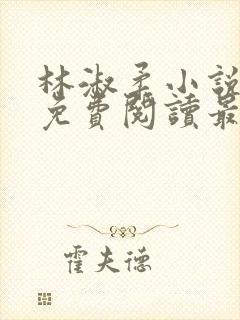 林淑柔小說
免費閱讀最
霍夫德